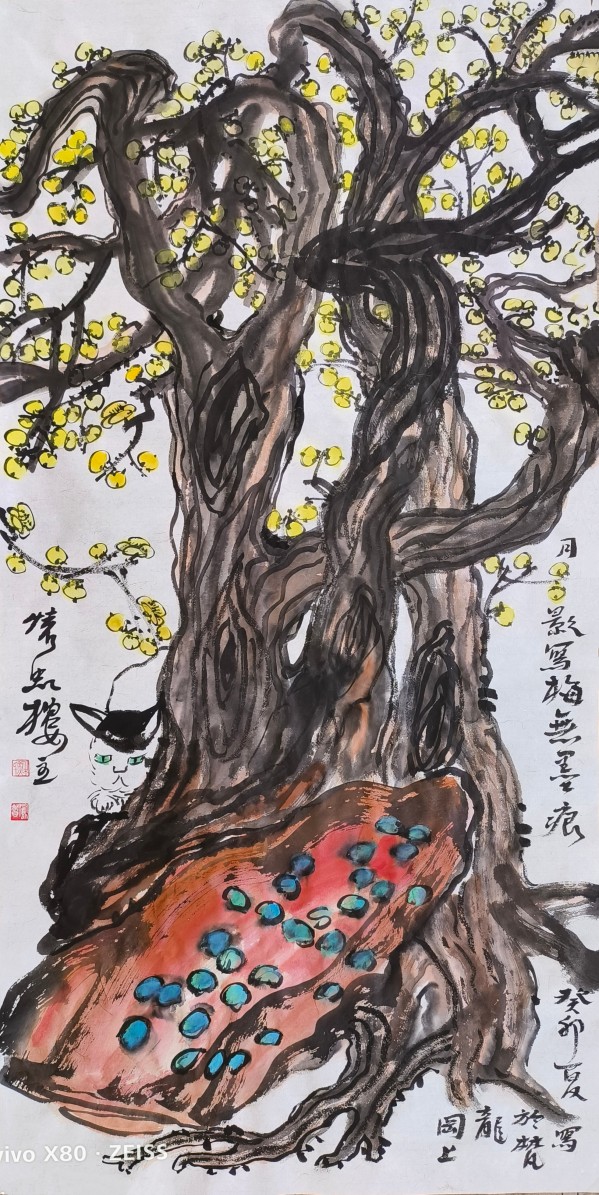 月影寫梅無墨痕
癸卯夏寫
於梵
龍
岡上
情忘樓主
vivo X80 · ZEISS